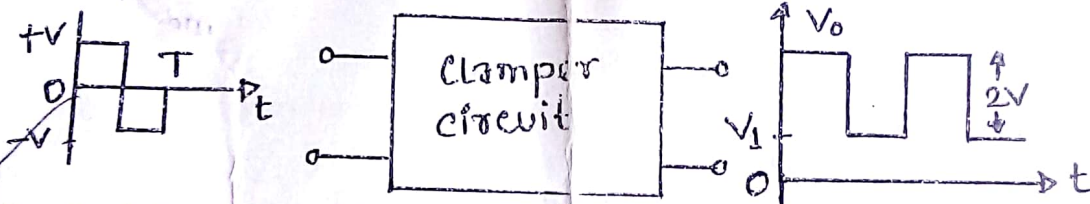 +V
T
0
t
-V
Clamper
circuit
V₀
2V
V₁
0
t